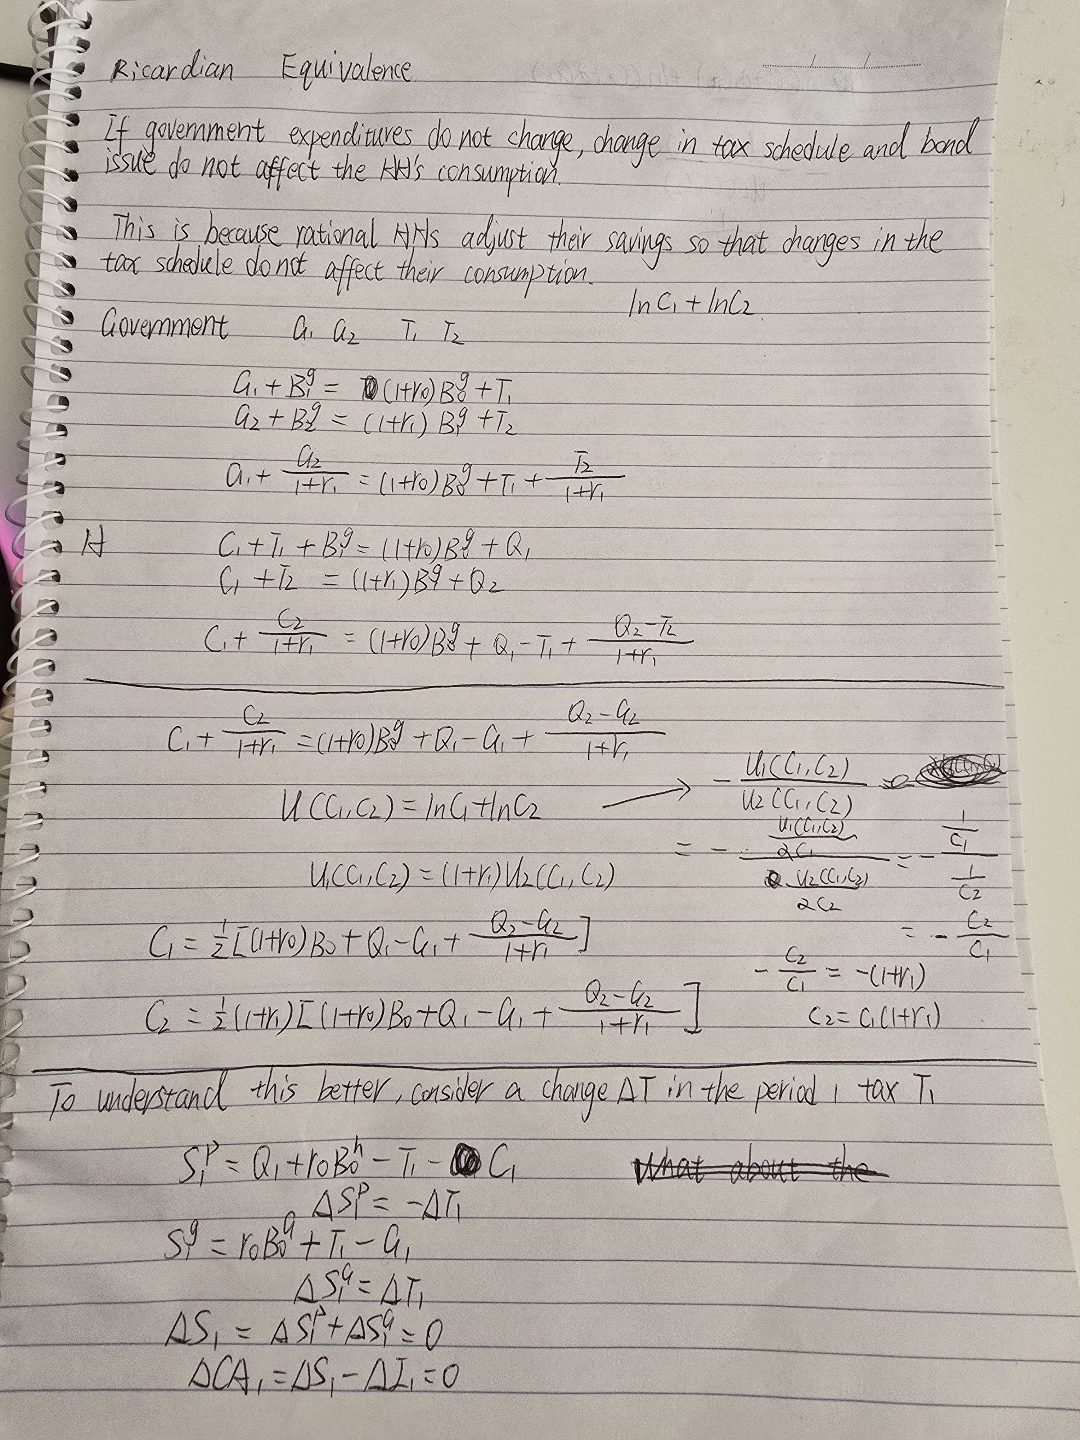 Ricardian Equivalence
If government expenditures do not change, change in tax schedule and bond
issue do not affect the HH's consumption.
This is because rational HHs adjust their savings so that changes in the
tax schedule do not affect their consumption.
lnC₁ + lnC₂
Government G₁ G₂ T₁ T₂
G₁ + B₁ᵍ = (1+r₀)B₀ᵍ + T₁
G₂ + B₂ᵍ = (1+r₁) B₁ᵍ + T₂
G₁ + G₂/(1+r₁) = (1+r₀)B₀ᵍ + T₁ + T₂/(1+r₁)
H C₁ + T₁ + B₁ᵍ = (1+r₀)B₀ᵍ + Q₁
C₁ + T₂ = (1+r₁)B₁ᵍ + Q₂
C₁ + C₂/(1+r₁) = (1+r₀)B₀ᵍ + Q₁ - T₁ + (Q₂-T₂)/(1+r₁)
C₁ + C₂/(1+r₁) = (1+r₀)B₀ᵍ + Q₁ - G₁ + (Q₂-G₂)/(1+r₁)
U(C₁,C₂) = lnC₁ + lnC₂ → - U₁(C₁,C₂)/U₂(C₁,C₂)
= - (U₁(C₁,C₂)/∂C₁)/(U₂(C₁,C₂)/∂C₂) = - (1/C₁)/(1/C₂)
= - C₂/C₁
U₁(C₁,C₂) = (1+r₁)U₂(C₁,C₂)
- C₂/C₁ = -(1+r₁)
C₂ = C₁(1+r₁)
C₁ = ½[(1+r₀)B₀ + Q₁ - G₁ + (Q₂-G₂)/(1+r₁)]
C₂ = ½(1+r₁)[(1+r₀)B₀ + Q₁ - G₁ + (Q₂-G₂)/(1+r₁)]
To understand this better, consider a change ΔT in the period 1 tax T₁
S₁ᵖ = Q₁ + r₀B₀ʰ - T₁ - C₁ What about the
ΔS₁ᵖ = -ΔT₁
S₁ᵍ = r₀B₀ᴳ + T₁ - G₁
ΔS₁ᴳ = ΔT₁
ΔS₁ = ΔS₁ᵖ + ΔS₁ᴳ = 0
ΔCA₁ = ΔS₁ - ΔI₁ = 0